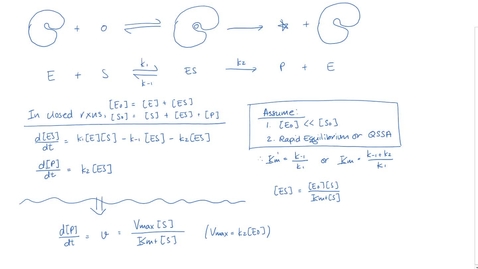 + o ⇌ → + 
E + S k₁ ⇌ k₋₁ ES k₂ → P + E
In closed rxns, [E₀] = [E] + [ES]
[S₀] = [S] + [ES] + [P]
d[ES]/dt = k₁[E][S] - k₋₁[ES] - k₂[ES]
d[P]/dt = k₂[ES]
Assume:
1. [E₀] << [S₀]
2. Rapid Equilibrium or QSSA
∴ Km = k₋₁/k₁ or Km = k₋₁+k₂/k₁
[ES] = [E₀][S]/Km+[S]
d[P]/dt = v = Vmax[S]/Km+[S] (Vmax = k₂[E₀])